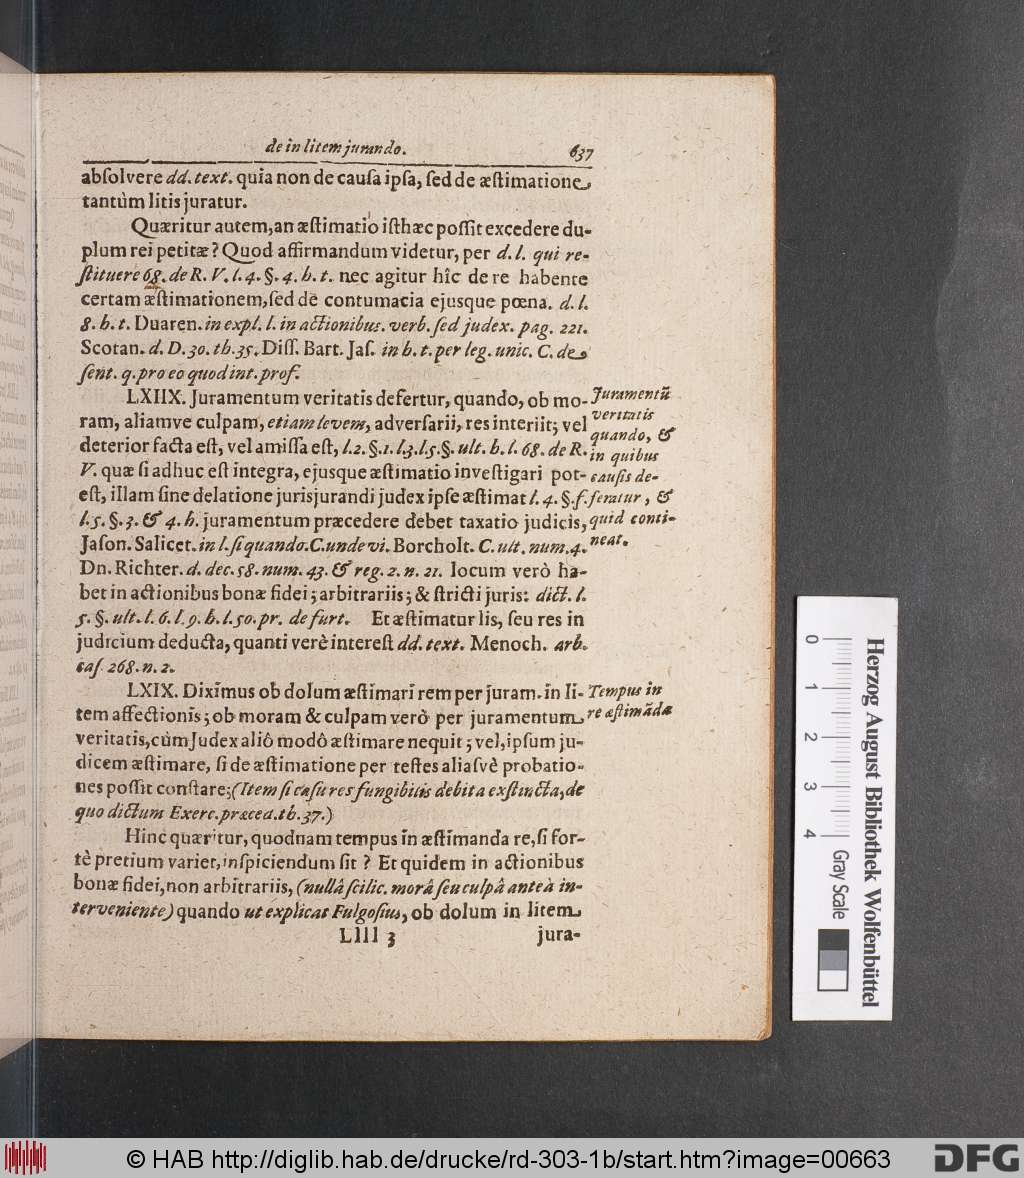 de in litem jurando. 637
abſolvere dd. text. quia non de cauſa ipſa, ſed de æſtimatione
tantùm litis juratur.
Quæritur autem, an æſtimatio iſthæc poſſit excedere du-
plum rei petitæ? Quod affirmandum videtur, per d. l. qui re-
ſtituere 68. de R. V. l. 4. §. 4. h. t. nec agitur hîc de re habente
certam æſtimationem, ſed de contumacia ejusque pœna. d. l.
8. h. t. Duaren. in expl. l. in actionibus. verb. ſed judex. pag. 221.
Scotan. d. D. 30. th. 35. Diſſ. Bart. Jaſ. in h. t. per leg. unic. C. de
ſent. q. pro eo quod int. prof.
LXIIX. Juramentum veritatis defertur, quando, ob mo-
ram, aliamve culpam, etiam levem, adverſarii, res interiit; vel
deterior facta eſt, vel amiſſa eſt, l. 2. §. 1. l. 3. l. 5. §. ult. h. l. 68. de R.
V. quæ ſi adhuc eſt integra, ejusque æſtimatio inveſtigari pot-
eſt, illam ſine delatione jurisjurandi judex ipſe æſtimat l. 4. §. f.
l. 5. §. 3. & 4. h. juramentum præcedere debet taxatio judicis,
Jaſon. Salicet. in l. ſi quando. C. unde vi. Borcholt. C. ult. num. 4.
Dn. Richter. d. dec. 58. num. 43. & reg. 2. n. 21. locum verò ha-
bet in actionibus bonæ fidei; arbitrariis; & ſtricti juris: dict. l.
5. §. ult. l. 6. l. 9. h. l. 50. pr. de furt. Et æſtimatur lis, ſeu res in
judicium deducta, quanti verè intereſt dd. text. Menoch. arb.
caſ. 268. n. 2.
Juramentũ
veritatis
quando, &
in quibus
cauſis de-
feratur, &
quid conti-
neat.
LXIX. Diximus ob dolum æſtimari rem per juram. in li-
tem affectionis; ob moram & culpam verò per juramentum
veritatis, cùm Judex aliô modô æſtimare nequit; vel, ipſum ju-
dicem æſtimare, ſi de æſtimatione per teſtes aliaſvè probatio-
nes poſſit conſtare; (Item ſi caſu res fungibilis debita exſtincta, de
quo dictum Exerc. præced. th. 37.)
Tempus in
re æſtimãdæ
Hinc quæritur, quodnam tempus in æſtimanda re, ſi for-
tè pretium variet, inſpiciendum ſit? Et quidem in actionibus
bonæ fidei, non arbitrariis, (nullâ ſcilic. morâ ſeu culpâ anteà in-
terveniente) quando ut explicat Fulgoſius, ob dolum in litem
Llll 3 jura-
0 1 2 3 4
Gray Scale
Herzog August Bibliothek Wolfenbüttel
© HAB http://diglib.hab.de/drucke/rd-303-1b/start.htm?image=00663
DFG